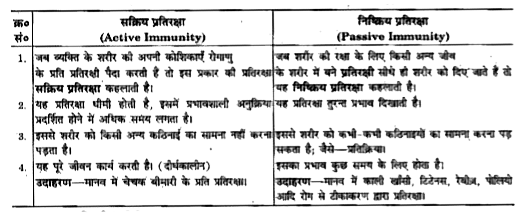 क्र०
सं०
सक्रिय प्रतिरक्षा
(Active Immunity)
निष्क्रिय प्रतिरक्षा
(Passive Immunity)
1. जब व्यक्ति के शरीर की अपनी कोशिकाएँ रोगाणु
के प्रति प्रतिरक्षी पैदा करती है तो इस प्रकार की प्रतिरक्षा
सक्रिय प्रतिरक्षा कहलाती है।
जब शरीर की रक्षा के लिए किसी अन्य जीव
के शरीर में बने प्रतिरक्षी सीधे ही शरीर को दिए जाते हैं तो
यह निष्क्रिय प्रतिरक्षा कहलाती है।
2. यह प्रतिरक्षा धीमी होती है, इसमें प्रभावशाली अनुक्रिया
प्रदर्शित होने में अधिक समय लगता है।
यह प्रतिरक्षा तुरन्त प्रभाव दिखाती है।
3. इससे शरीर को किसी अन्य कठिनाई का सामना नहीं करना
पड़ता है।
इससे शरीर को कभी-कभी कठिनाइयों का सामना करना पड़
सकता है; जैसे—प्रतिक्रिया।
4. यह पूरे जीवन कार्य करती है। (दीर्घकालीन)
उदाहरण—मानव में चेचक बीमारी के प्रति प्रतिरक्षा।
इसका प्रभाव कुछ समय के लिए होता है।
उदाहरण—मानव में काली खाँसी, टिटेनस, रेबीज, पोलियो
आदि रोग से टीकाकरण द्वारा प्रतिरक्षा।